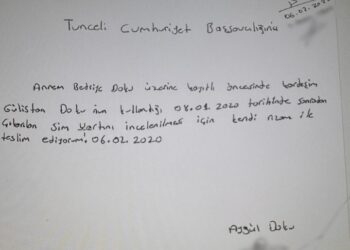 06.02.2020
Tunceli Cumhuriyet Başsavcılığına
Annem Bedriye Doku üzerine kayıtlı öncesinde kardeşim
Gülistan Doku'nun kullandığı, 08.01.2020 tarihinde sonradan
Çıkarılan Sim Kartını incelenilmesi için kendi rızam ile
teslim ediyorum. 06.02.2020
Aygül Doku